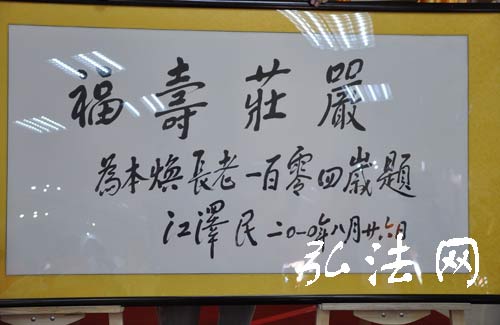 福壽莊嚴
為本煥長老一百零四歲題
江澤民 二〇一〇年八月廿六日
弘法网